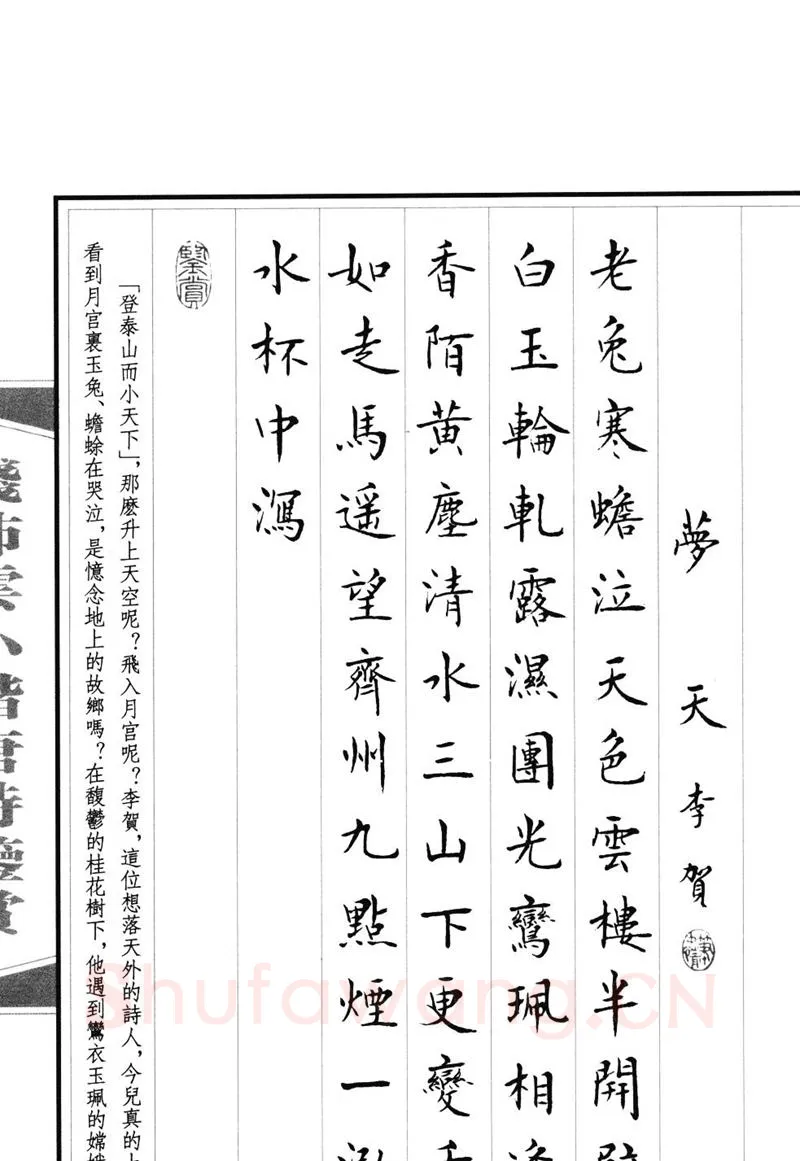 夢 天 李賀
老兔寒蟾泣天色雲樓半開
白玉輪軋露濕團光鸞珮相
香陌黃塵清水三山下更變千
如走馬遥望齊州九點煙一泓
水杯中瀉
鑒賞
「登泰山而小天下」，那麽升上天空呢？飛入月宫呢？李賀，這位想落天外的詩人，今兒真的
看到月宫裏玉兔、蟾蜍在哭泣，是憶念地上的故鄉嗎？在馥鬱的桂花樹下，他遇到鸞衣玉珮的嫦
雲小楷唐詩鑒賞
Shufawang.CN